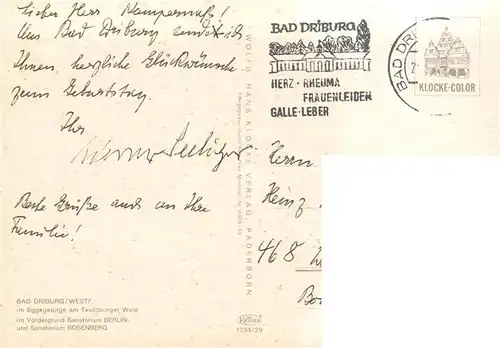 Lieber Herr
Aus Bad Driburg sendet ich
Ihnen, herzliche Glückwünsche
zum Geburtstag.
Ihr
Werner
Beste Grüße auch an Ihre
Familie!
BAD DRIBURG/WESTF.
im Eggegebirge am Teutoburger Wald
im Vordergrund Sanatorium BERLIN
und Sanatorium ROSENBERG
WOLFG. HANS KLOCKE VERLAG, PADERBORN
1294/29
BAD DRIBURG
HERZ · RHEUMA
FRAUENLEIDEN
GALLE · LEBER
BAD DRI
2
KLOCKE-COLOR
Herrn
Heinz
468